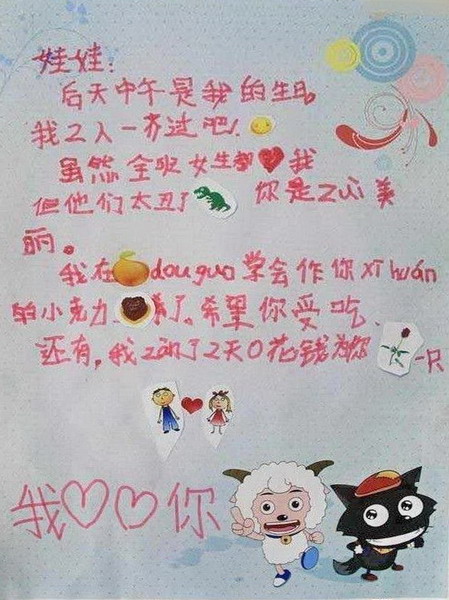 娃娃:
后天中午是我的生日。
我2人一齐过吧!
虽然全班女生都❤我
但他们太丑了 你是zui美
丽。
我在 douguo学会作你xǐhuán
的小克力 了。希望你受吃.
还有,我 了2天0花钱为你 一只
我♡♡你